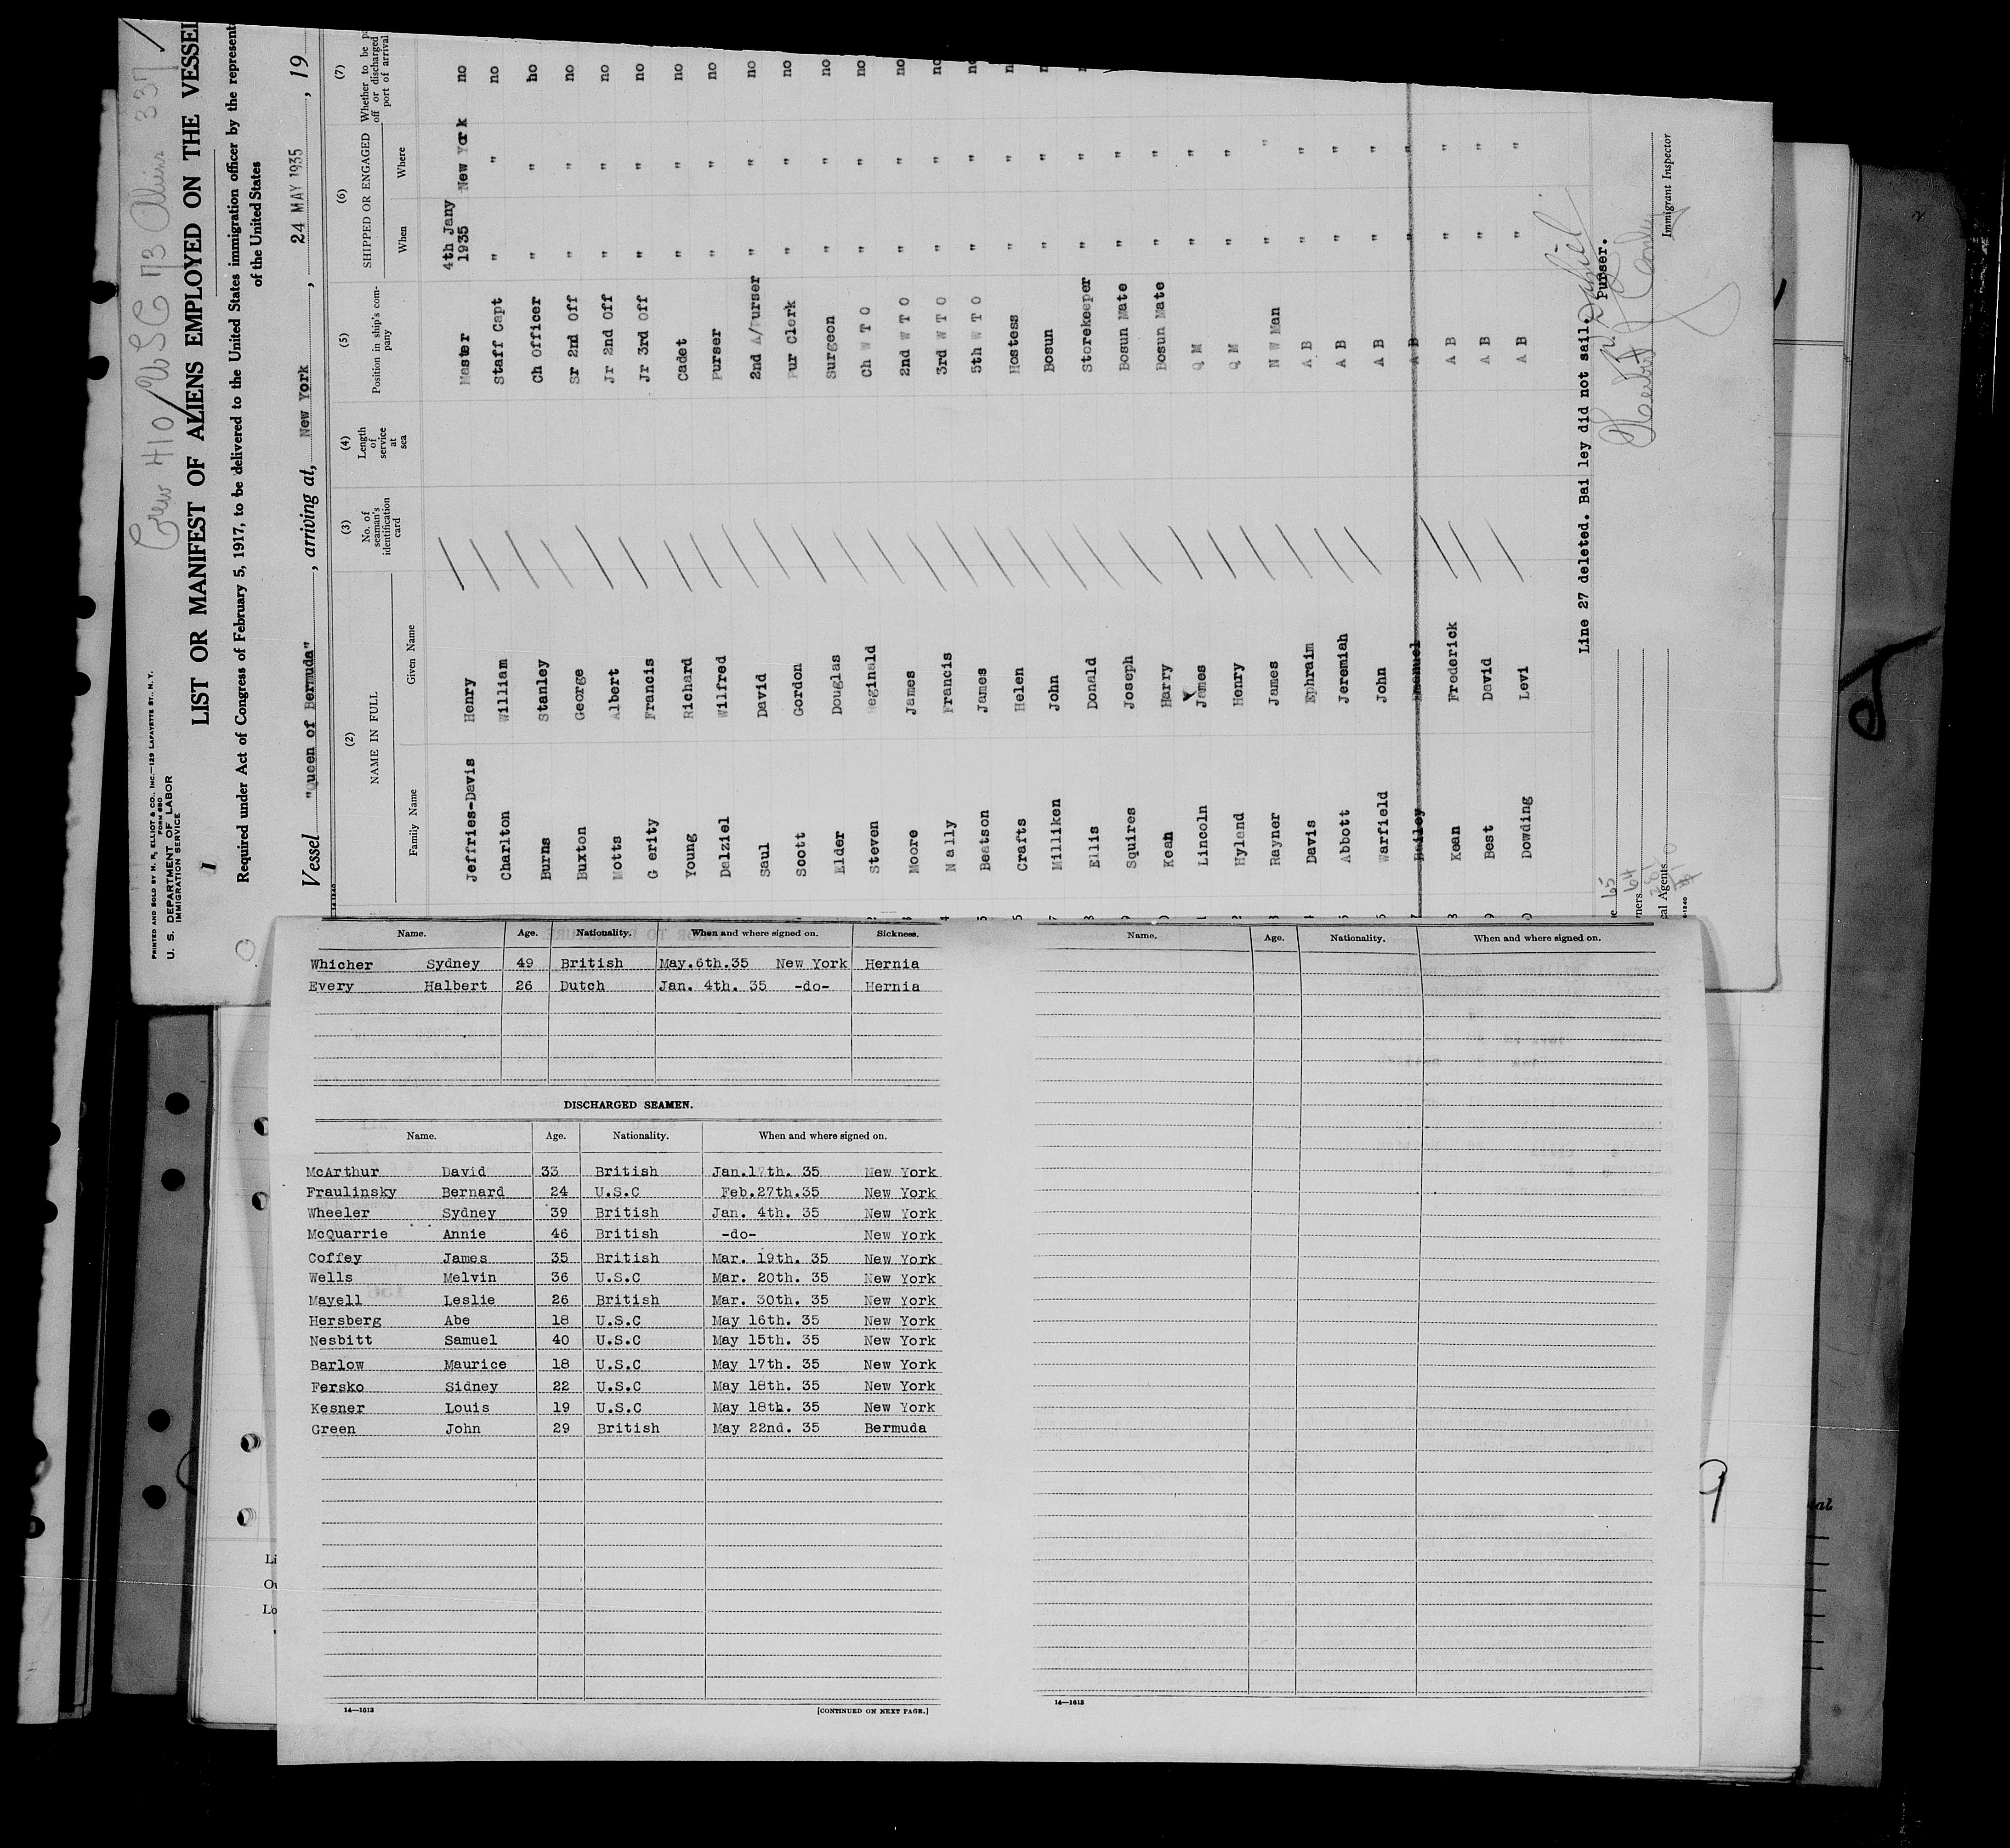 Crew 410/USC 73 Aliens 337
PRINTED AND SOLD BY M. R. ELLIOT & CO., INC.—129 LAFAYETTE ST., N. Y.
FORM 680
U. S. DEPARTMENT OF LABOR
IMMIGRATION SERVICE
1
LIST OR MANIFEST OF ALIENS EMPLOYED ON THE VESSEL
Required under Act of Congress of February 5, 1917, to be delivered to the United States immigration officer by the represent
of the United States
Vessel "Queen of Bermuda", arriving at, New York, 24 MAY 1935, 19
(2) (3) (4) (5) (6) (7)
NAME IN FULL No. of seaman's identification card Length of service at sea Position in ship's company SHIPPED OR ENGAGED Whether to be off or discharged port of arrival
Family Name Given Name When Where
Jeffries-Davis Henry Master 4th Jany 1935 New York no
Charlton William Staff Capt " " no
Burns Stanley Ch Officer " " no
Buxton George Sr 2nd Off " " no
Motts Albert Jr 2nd Off " " no
G erity Francis Jr 3rd Off " " no
Young Richard Cadet " " no
Dalziel Wilfred Purser " " no
Saul David 2nd A/Purser " " no
Scott Gordon Pur Clerk " " no
Elder Douglas Surgeon " " no
Steven Reginald Ch W T O " " no
Moore James 2nd W T O " " no
N ally Francis 3rd W T O " " no
Beatson James 5th W T O " " no
Crafts Helen Hostess " "
Milliken John Bosun " "
Ellis Donald Storekeeper " "
Squires Joseph Bosun Mate " "
Kean Harry Bosun Mate " "
Lincoln James Q M " "
Hyland Henry Q M " "
Rayner James N W Man " "
Davis Ephraim A B " "
Abbott Jeremiah A B " "
Warfield John A B " "
Bailey A B " "
Kean Frederick A B " "
Best David A B " "
Dowding Levi A B " "
Line 27 deleted. Bai ley did not sail.
Purser.
Immigrant Inspector
Name. Age. Nationality. When and where signed on. Sickness.
Whicher Sydney 49 British May.6th.35 New York Hernia
Every Halbert 26 Dutch Jan. 4th. 35 -do- Hernia
DISCHARGED SEAMEN.
Name. Age. Nationality. When and where signed on.
McArthur David 33 British Jan.17th. 35 New York
Fraulinsky Bernard 24 U.S.C Feb.27th.35 New York
Wheeler Sydney 39 British Jan. 4th. 35 New York
McQuarrie Annie 46 British -do- New York
Coffey James 35 British Mar. 19th. 35 New York
Wells Melvin 36 U.S.C Mar. 20th. 35 New York
Mayell Leslie 26 British Mar. 30th. 35 New York
Hersberg Abe 18 U.S.C May 16th. 35 New York
Nesbitt Samuel 40 U.S.C May 15th. 35 New York
Barlow Maurice 18 U.S.C May 17th. 35 New York
Fersko Sidney 22 U.S.C May 18th. 35 New York
Kesner Louis 19 U.S.C May 18th. 35 New York
Green John 29 British May 22nd. 35 Bermuda
14—1613 [CONTINUED ON NEXT PAGE.]
Name. Age. Nationality. When and where signed on.
14—1613